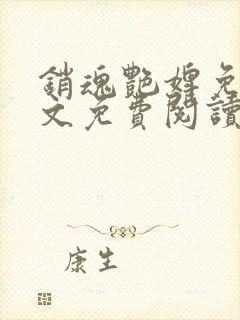 銷魂艷婢免
文免費閱讀
康生